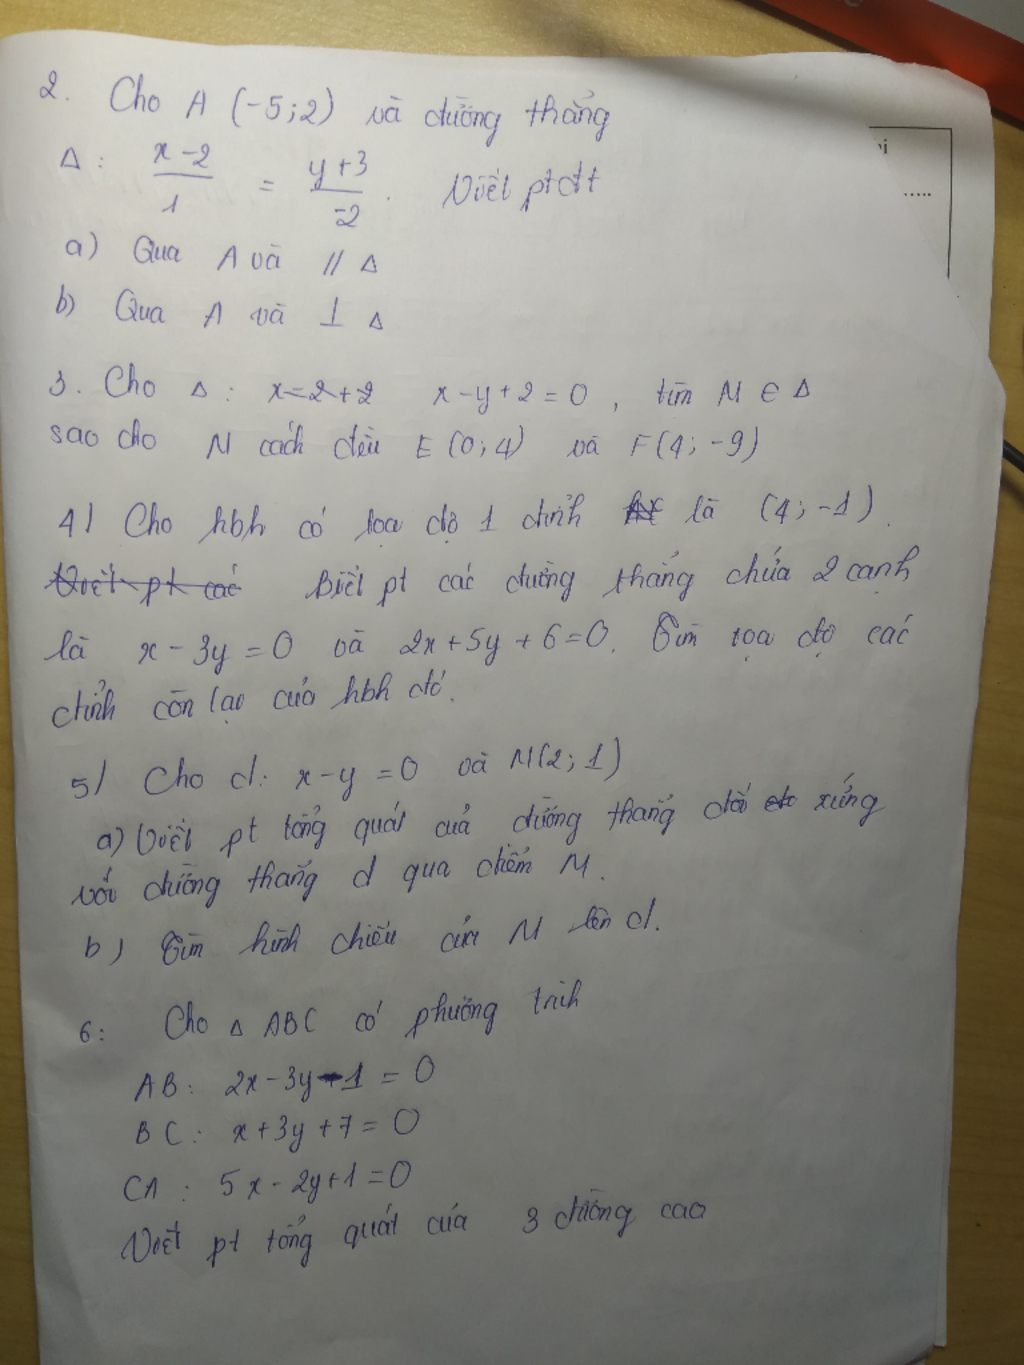 2. Cho A (-5;2) và đường thẳng
Δ: x-2/1 = y+3/-2. Viết pt đt
a) Qua A và // Δ
b) Qua A và ⊥ Δ
3. Cho Δ: x=2+2 x-y+2=0, tìm M ∈ Δ
sao cho M cách đều E(0;4) và F(4;-9)
4) Cho hbh có tọa độ 1 đỉnh là (4;-1).
Viết pt các Biết pt các đường thẳng chứa 2 cạnh
là x-3y=0 và 2x+5y+6=0. Tìm tọa độ các
đỉnh còn lại của hbh đó.
5) Cho d: x-y=0 và M(2;1)
a) Viết pt tổng quát của đường thẳng đối xứng
với đường thẳng d qua điểm M.
b) Tìm hình chiếu của M lên d.
6: Cho Δ ABC có phương trình
AB: 2x-3y-1=0
BC: x+3y+7=0
CA: 5x-2y+1=0
Viết pt tổng quát của 3 đường cao
.....